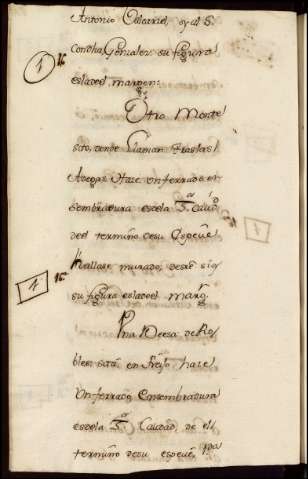 Antonio y al S.
Concha Gonzalez su figura
es la del margen:
1
Otro Monte
sito, donde llaman Traslas
Adegas Haze un ferrado en
sembradura es de la 3.ª Calid.d
de el termino de su Especie
Hallase murado, de su
su figura es la del març.n
1
Una Deesa de Ro
bles sita en haze
Un ferrado, en sembradura
es de la 3.ª Calidad, de el
termino de su especie,